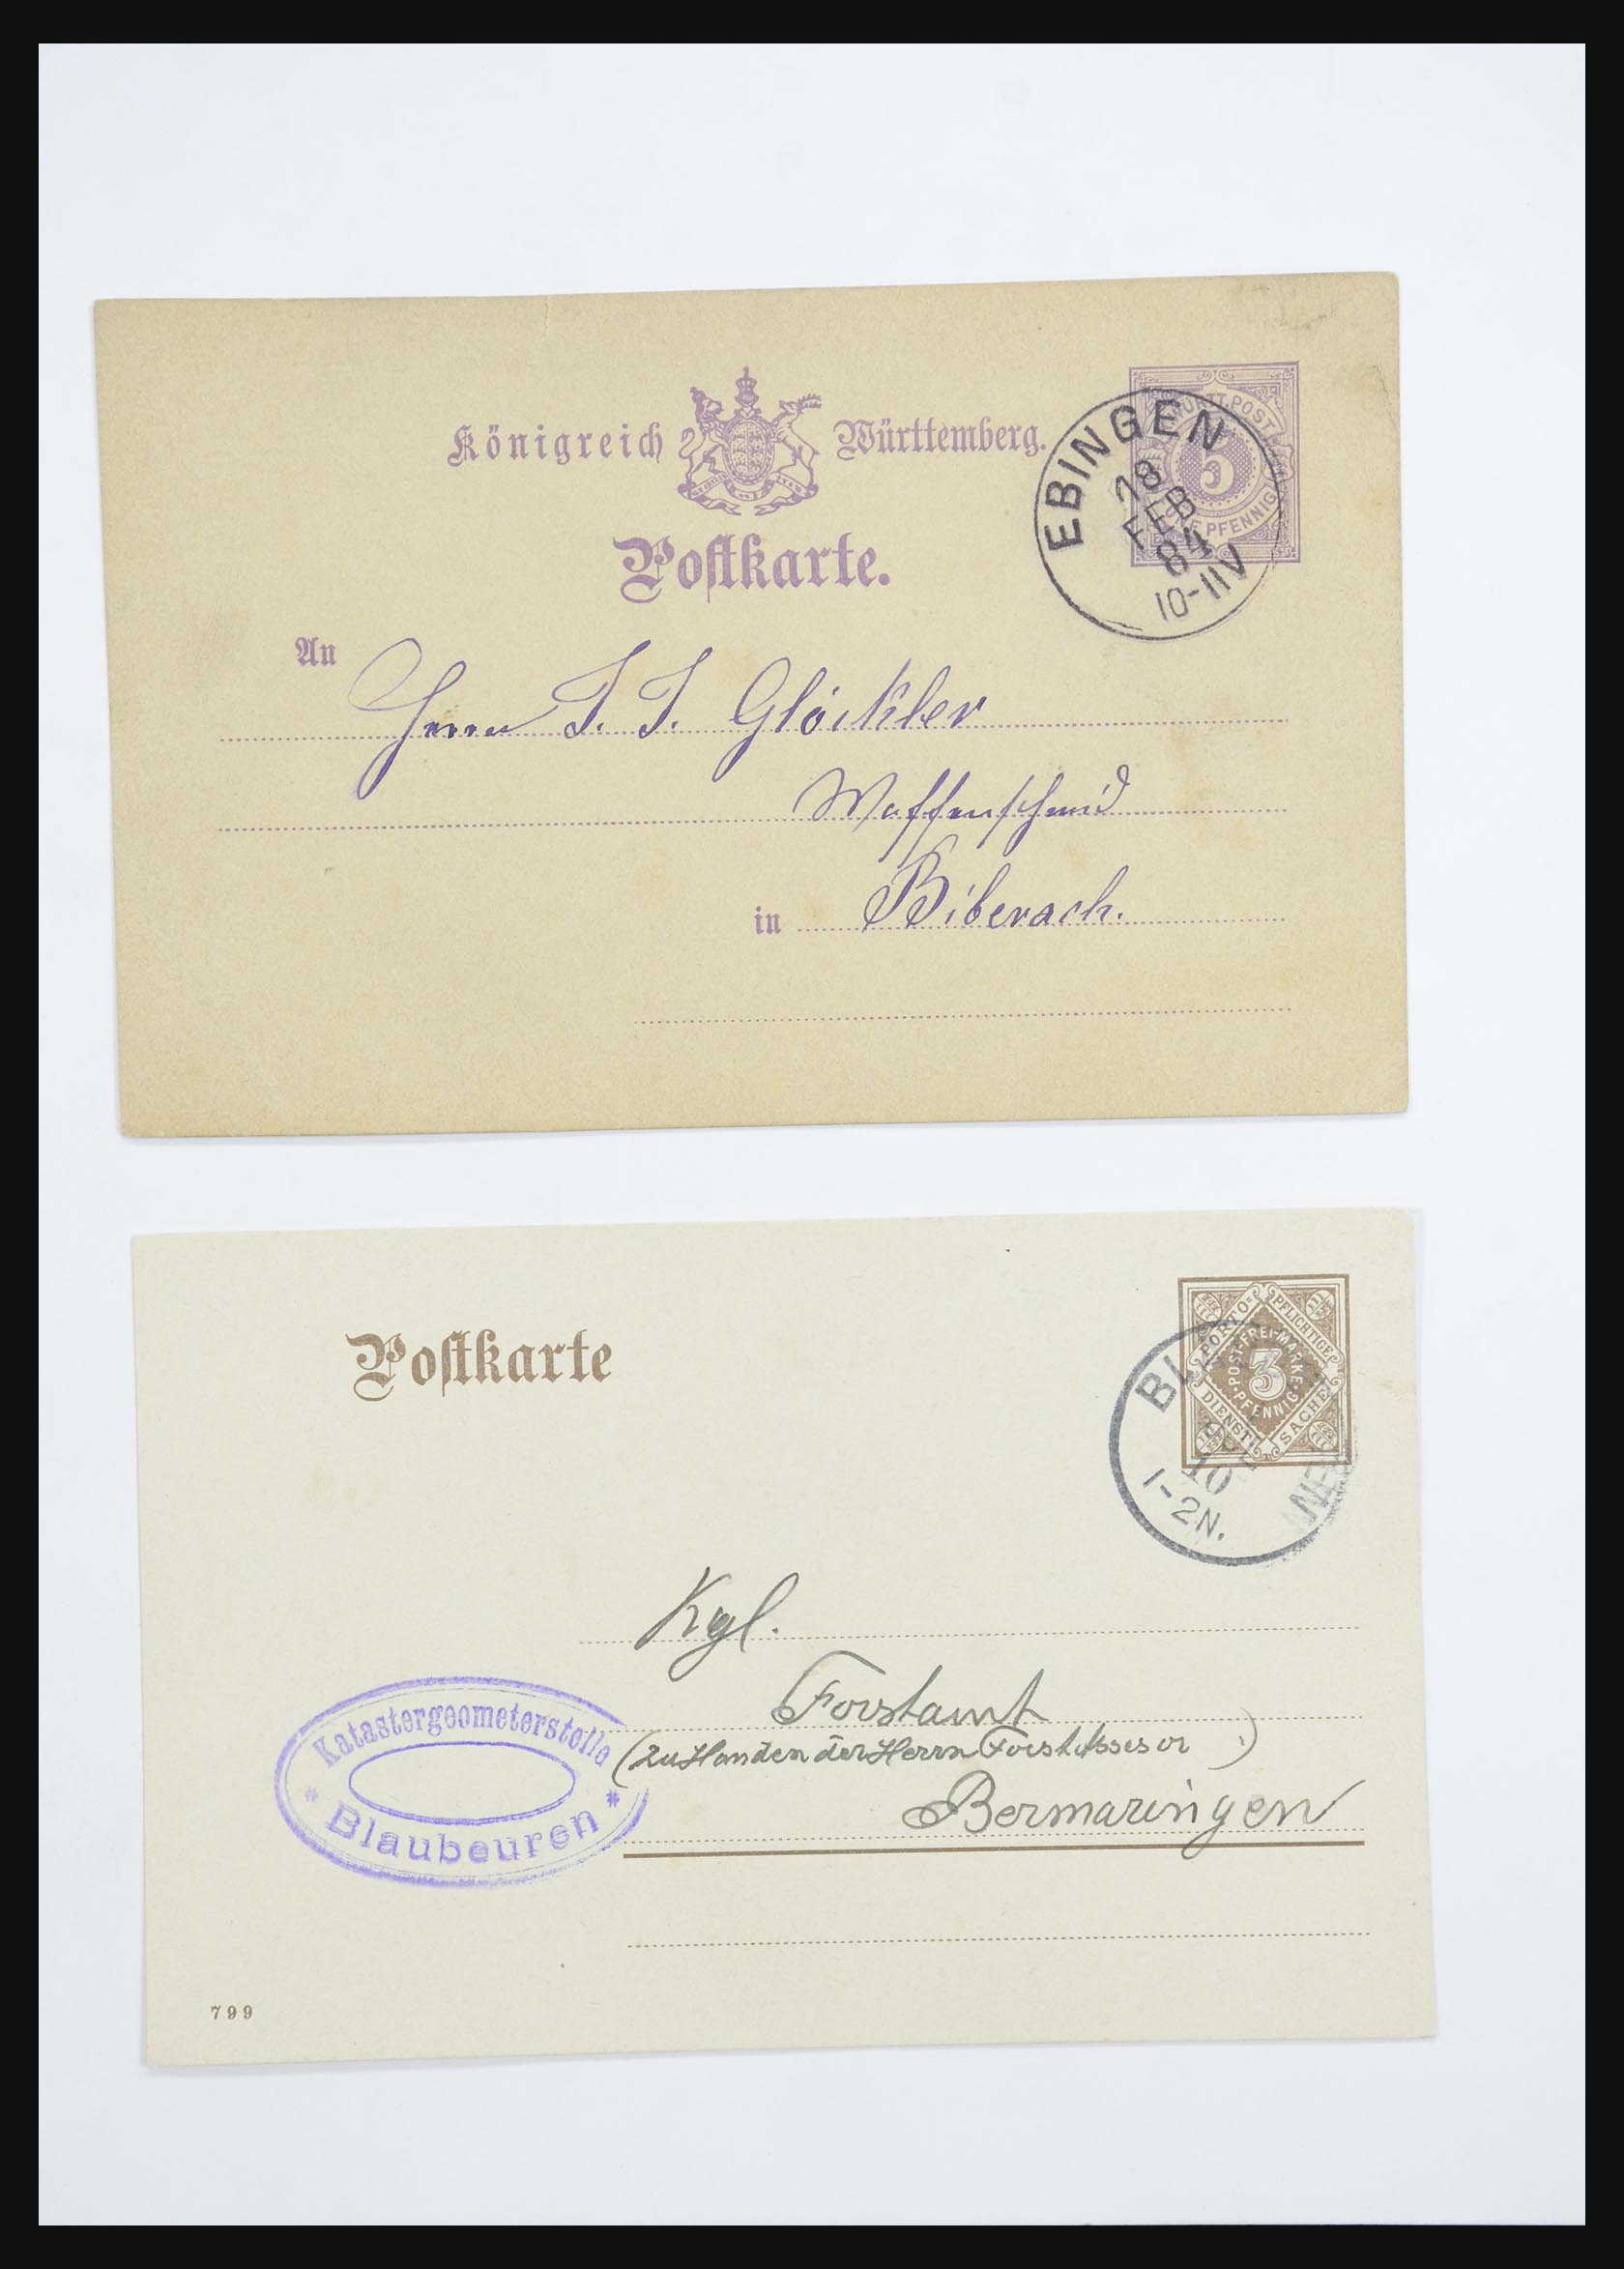 Königreich Württemberg.
Postkarte.
WÜRTT. POST
5
FÜNF PFENNIG
EBINGEN
18
FEB
84
10-11V
An
Herrn J. J. Glöckler
Waffenschmid
in Biberach.
Postkarte
PORTO=
PFLICHTIGE
DIENST
SACHE
POSTFREIMARKE
3
PFENNIG
10
1-2N.
Kgl.
Forstamt
(zu Handen der Herrn Forstassesor .)
Bermaringen
Katastergeometerstelle
* Blaubeuren *
799